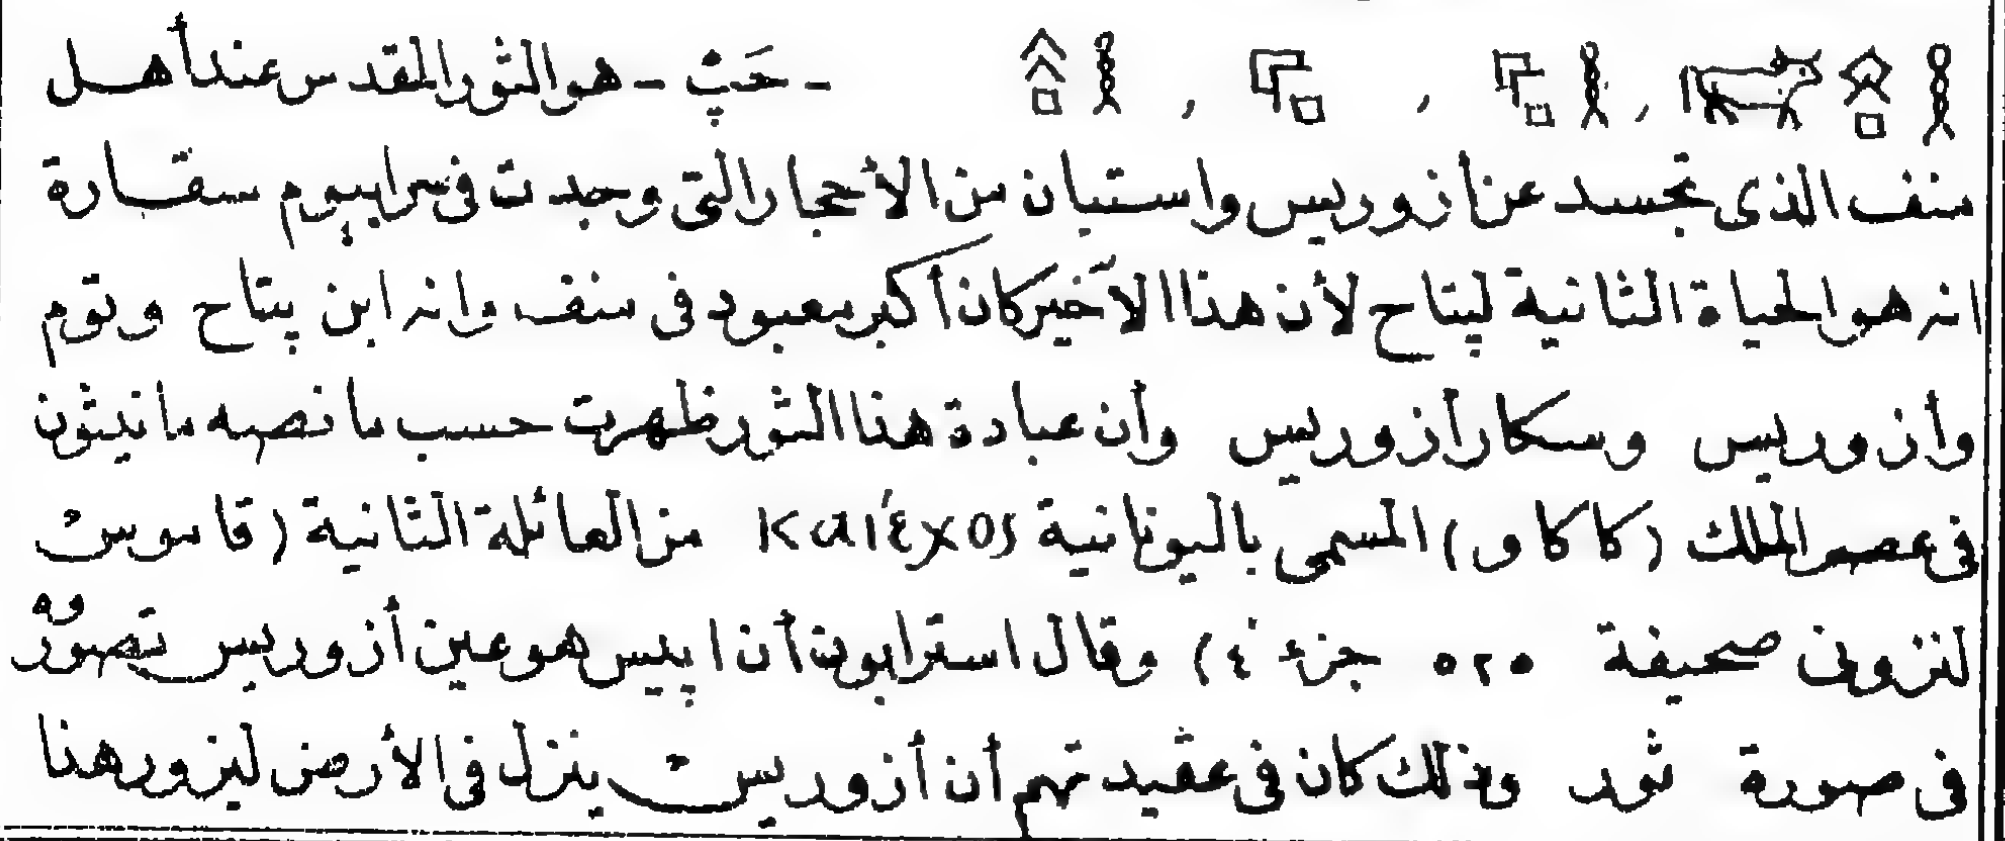 - حَپْ - هو الثور المقدس عند أهل
منف الذى تجسد عن أزوريس واستبان من الأحجار التى وجدت فى سرابيوم سقارة
انه هو الحياة الثانية لپتاح لأن هذا الآخير كان أكبر معبود فى منف وانه ابن پتاح وتوم
وأزوريس وسكار أزوريس وأن عبادة هذا الثور ظهرت حسب ما نصه مانيثون
فى عصر الملك (كاكاو) المسمى باليونانية Καιέχος من العائلة الثانية (قاموس
لنزون صحيفة ٥٢٥ جزء ٤) وقال استرابون أن اپيس هو عين أزوريس تصوّروه
فى صورة ثور وذلك كان فى عقيدتهم أن أزوريس ينزل فى الأرض ليزورهنا